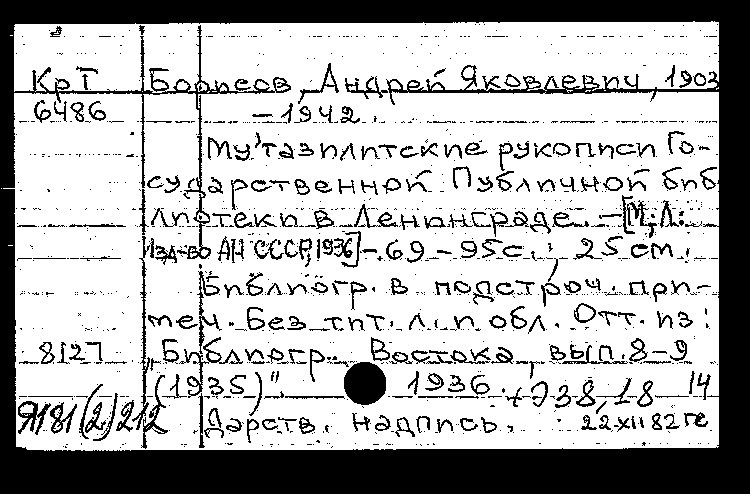 КрТ Борисов, Андрей Яковлевич, 1903
6486 – 1942.
Му'тазилитские рукописи Го-
сударственной Публичной биб
лиотеки в Ленинграде. – [М.; Л.:
Изд-во АН СССР, 1936] – 69 – 95 с.; 25 см.
Библиогр. в подстроч. при-
меч. Без тит. л. и обл. Отт. из:
8127 „Библиогр. Востока, вып. 8–9
(1935)". 1936. +Э38,18 14
Я181(2)212 Дарств. надпись. 22 XII 82 ге